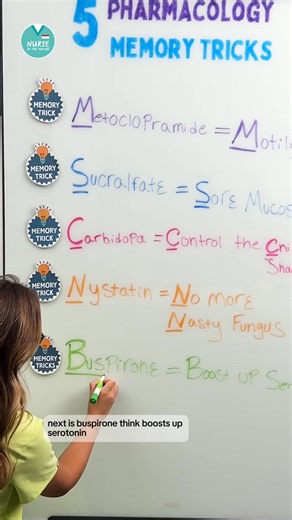 NURSE
IN THE MAKING
5 PHARMACOLOGY
MEMORY TRICKS
MEMORY
TRICK
Metoclopramide = Motili
MEMORY
TRICK
Sucralfate = Sore Mucos
MEMORY
TRICK
Carbidopa = Control the
Sha
MEMORY
TRICK
Nystatin = No more
Nasty Fungus
MEMORY
TRICKS
Buspirone = Boost up Ser
next is buspirone think boosts up
serotonin